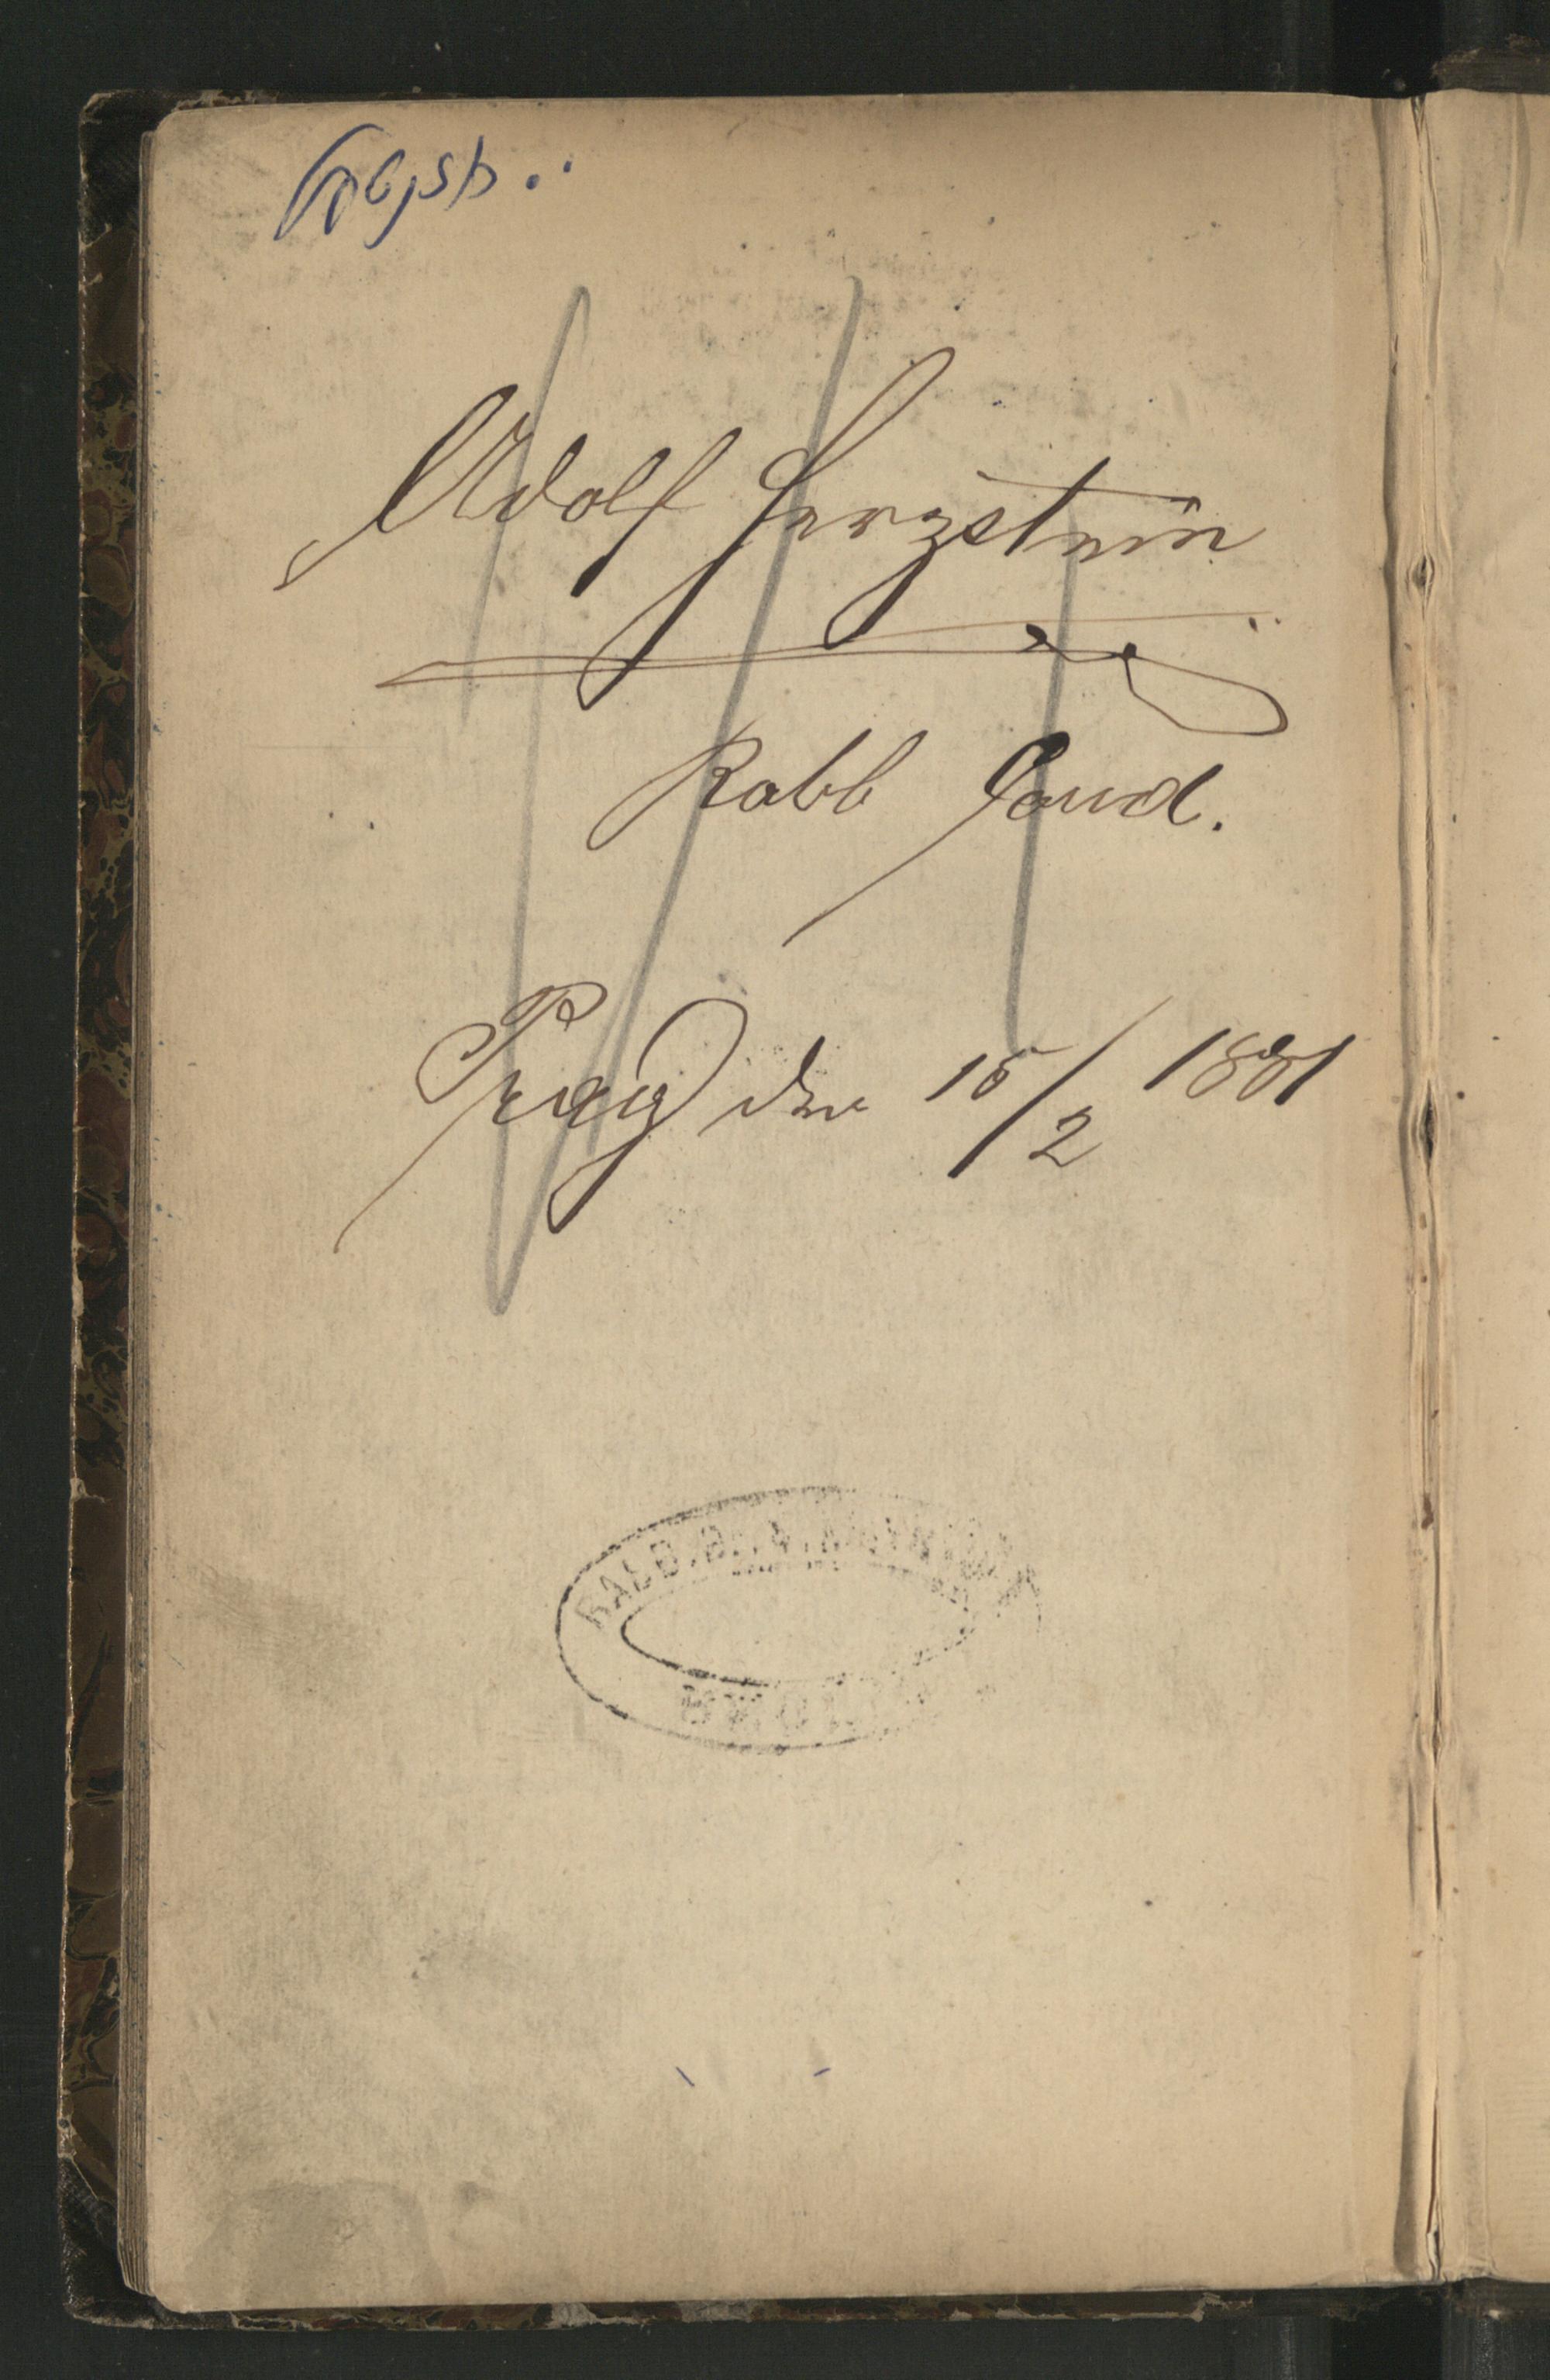 Adolf Herzstein
Rabb Cand.
Prag den 15/2 1881